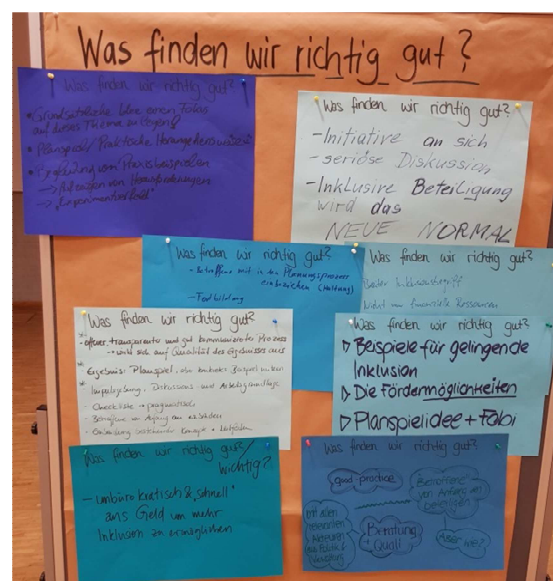 Was finden wir richtig gut?
Was finden wir richtig gut?
• Grundsätzliche Idee einen Fokus
auf dieses Thema zu legen!
• Planspiel/ Praktische Herangehensweise
• Begleitung von Praxisbeispielen
→ Aufzeigen von Herausforderungen
→ „Experimentierfeld"
Was finden wir richtig gut?
- Initiative an sich
- seriöse Diskussion
- Inklusive Beteiligung
wird das
NEUE NORMAL
Was finden wir richtig gut?
- Betroffene mit in den Planungsprozess
einbeziehen (Haltung)
- Fortbildung
Was finden wir richtig gut?
Breiter Inklusionsbegriff
Nicht nur finanzielle Ressourcen
Was finden wir richtig gut?
• offener, transparenter und gut kommunizierter Prozess
→ wirkt sich auf Qualität des Ergebnisses aus
Ergebnis: Planspiel, ein konkretes Beispiel
Impulsgebung, Diskussions- und Arbeitsgrundlage
- Checkliste → pragmatisch
- Betroffene von Anfang an
- Entwicklung Konzept + Leitfaden
Was finden wir richtig gut?
▷ Beispiele für gelingende
Inklusion
▷ Die Fördermöglichkeiten
▷ Planspielidee + Fobi
Was finden wir richtig gut?/
wichtig?
- unbürokratisch & „schnell"
ans Geld um mehr
Inklusion zu ermöglichen
Was finden wir richtig gut?
good-practice
Betroffene
von Anfang an
beteiligen
mit allen
relevanten
Akteuren
aus Politik &
Beratung
+ Quali
Aber wie?